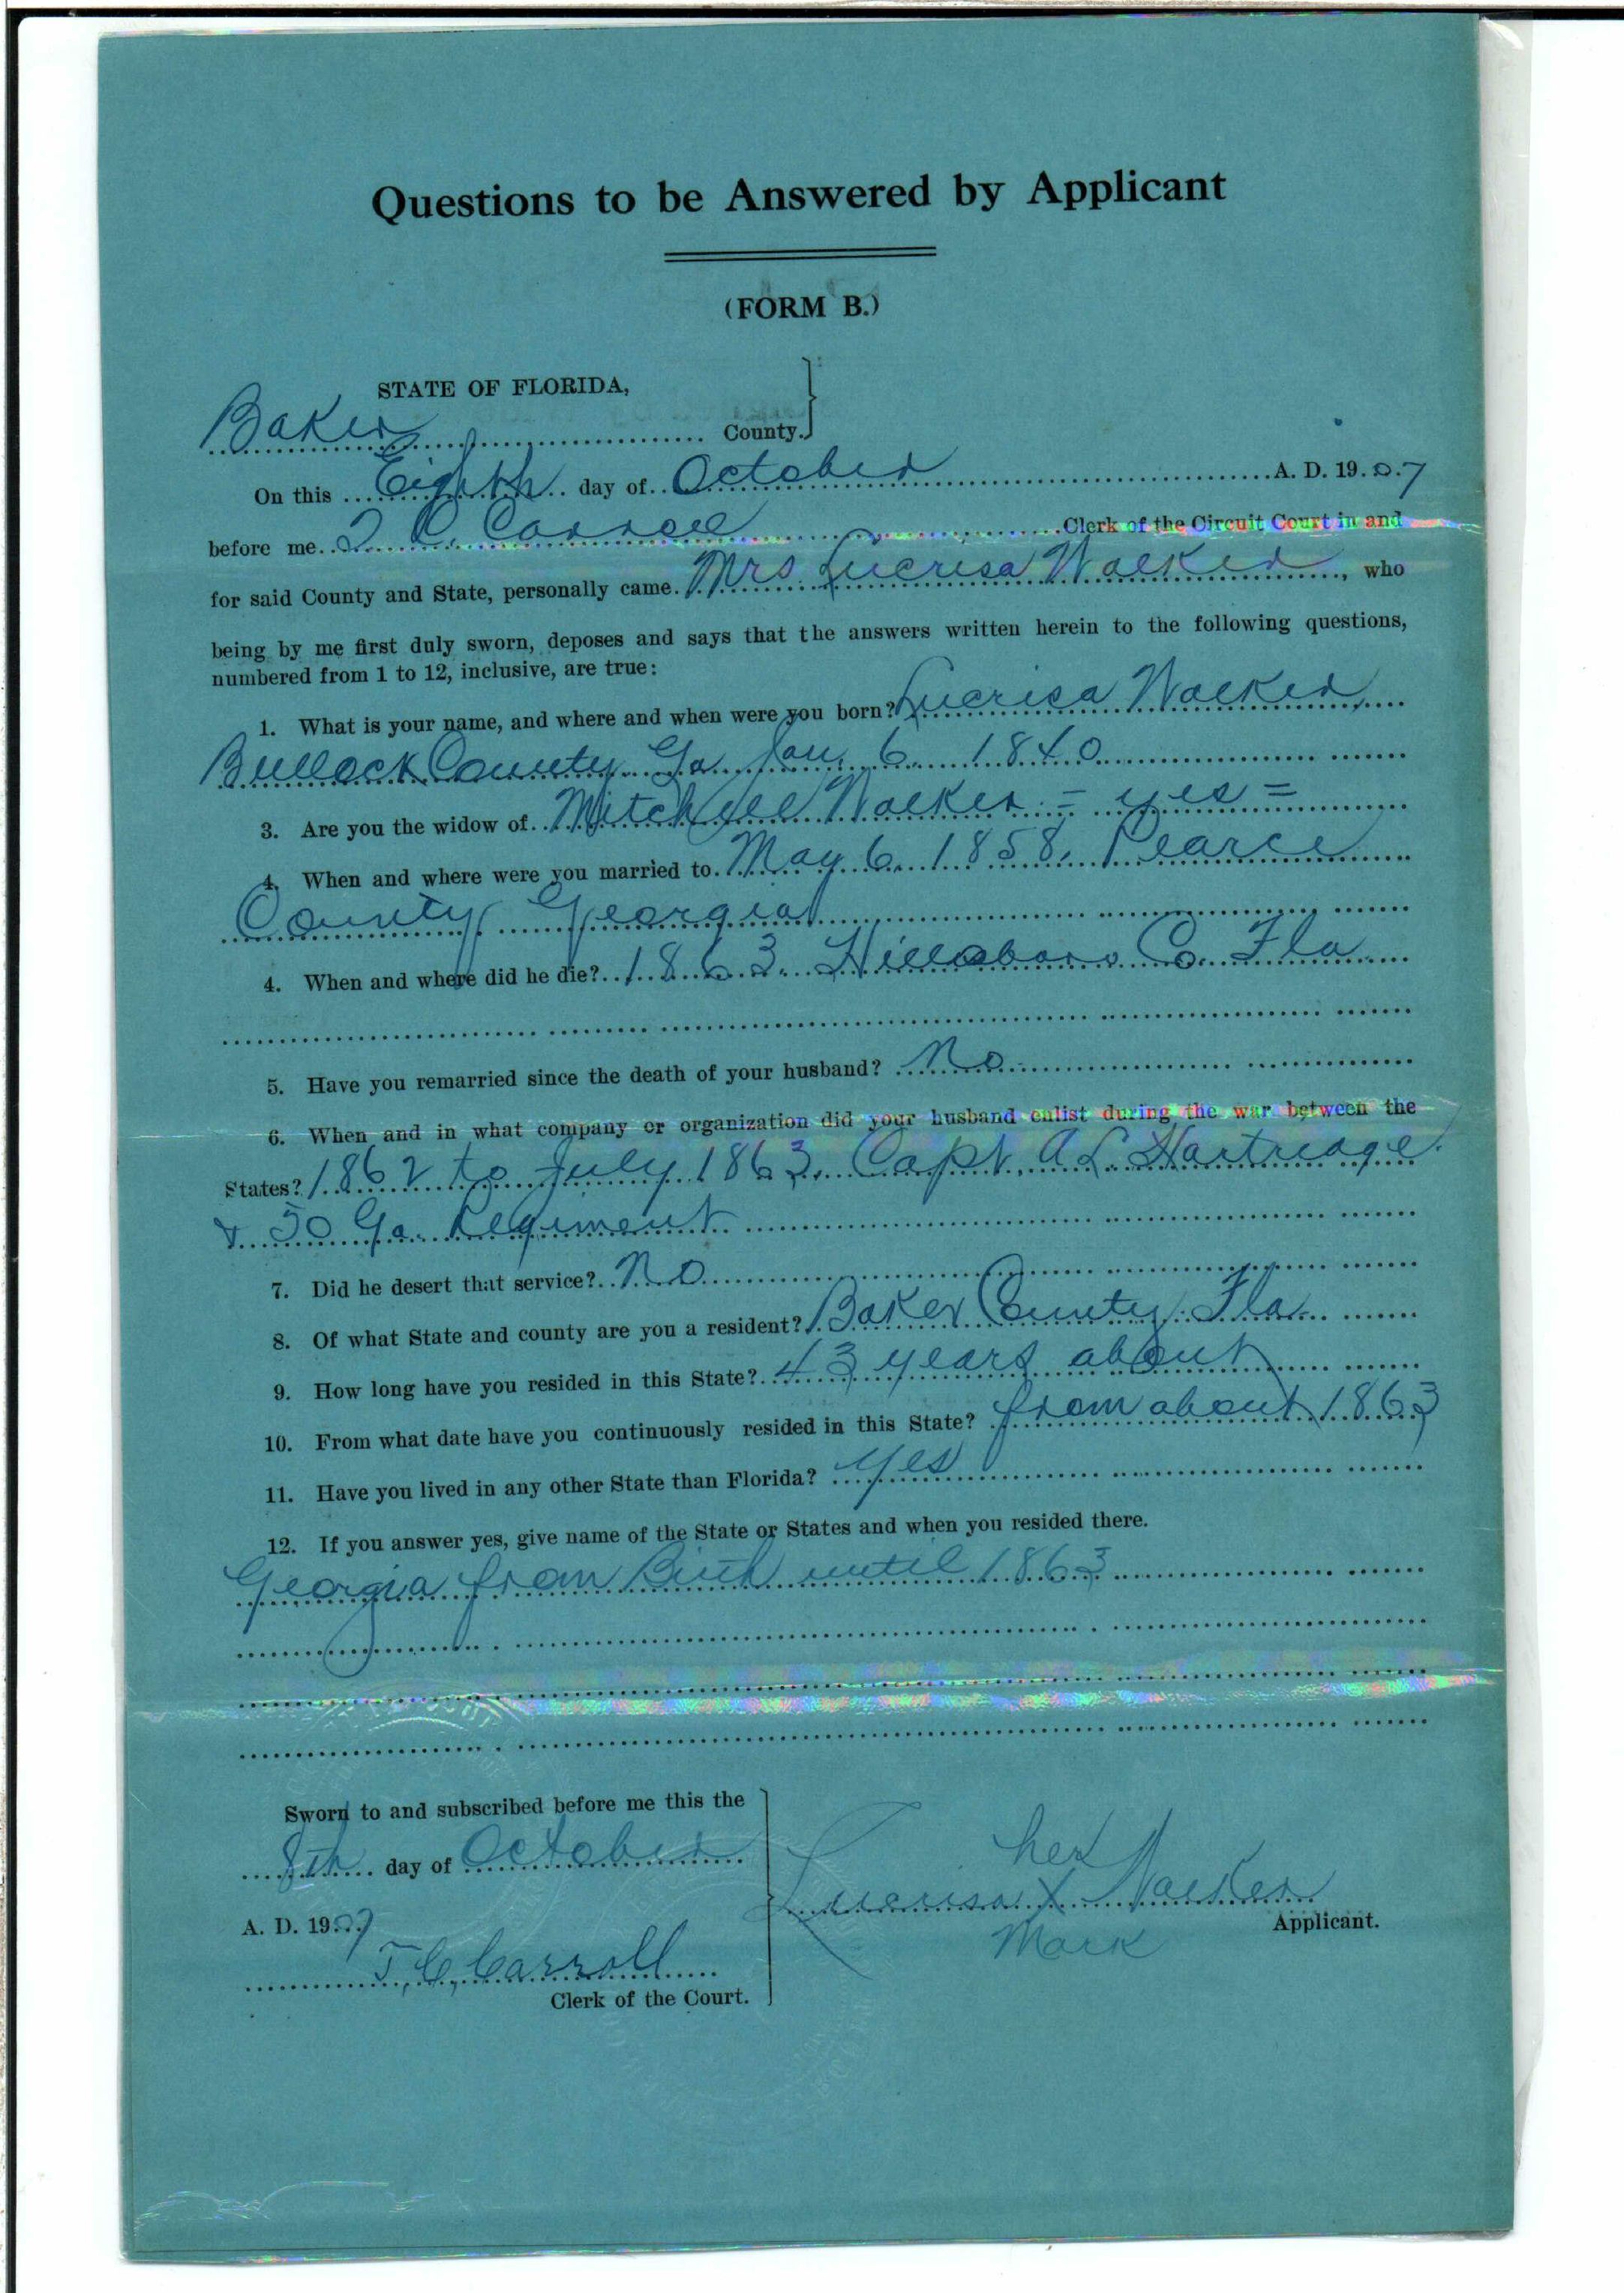 Questions to be Answered by Applicant
(FORM B.)
STATE OF FLORIDA,
Baker County.
On this Eighth day of October A. D. 1907
before me T. C. Carroll Clerk of the Circuit Court in and
for said County and State, personally came Mrs Lucrisa Walker, who
being by me first duly sworn, deposes and says that the answers written herein to the following questions,
numbered from 1 to 12, inclusive, are true:
1. What is your name, and where and when were you born? Lucrisa Walker
Bullock County Ga Jan. 6 1840
3. Are you the widow of Mitchell Walker = yes =
4. When and where were you married to May 6 1858, Pearce
County Georgia
4. When and where did he die? 1863 Hillsboro Co. Fla
5. Have you remarried since the death of your husband? No
6. When and in what company or organization did your husband enlist during the war between the
States? 1862 to July 1863, Capt. A L Hartridge
& 50 Ga. Regiment
7. Did he desert that service? No
8. Of what State and county are you a resident? Baker County Fla
9. How long have you resided in this State? 43 years about
10. From what date have you continuously resided in this State? from about 1863
11. Have you lived in any other State than Florida? Yes
12. If you answer yes, give name of the State or States and when you resided there.
Georgia from Birth until 1863
Sworn to and subscribed before me this the
8th day of October
A. D. 1907
T. C. Carroll
Clerk of the Court.
her
Lucrisa X Walker
Applicant.
Mark